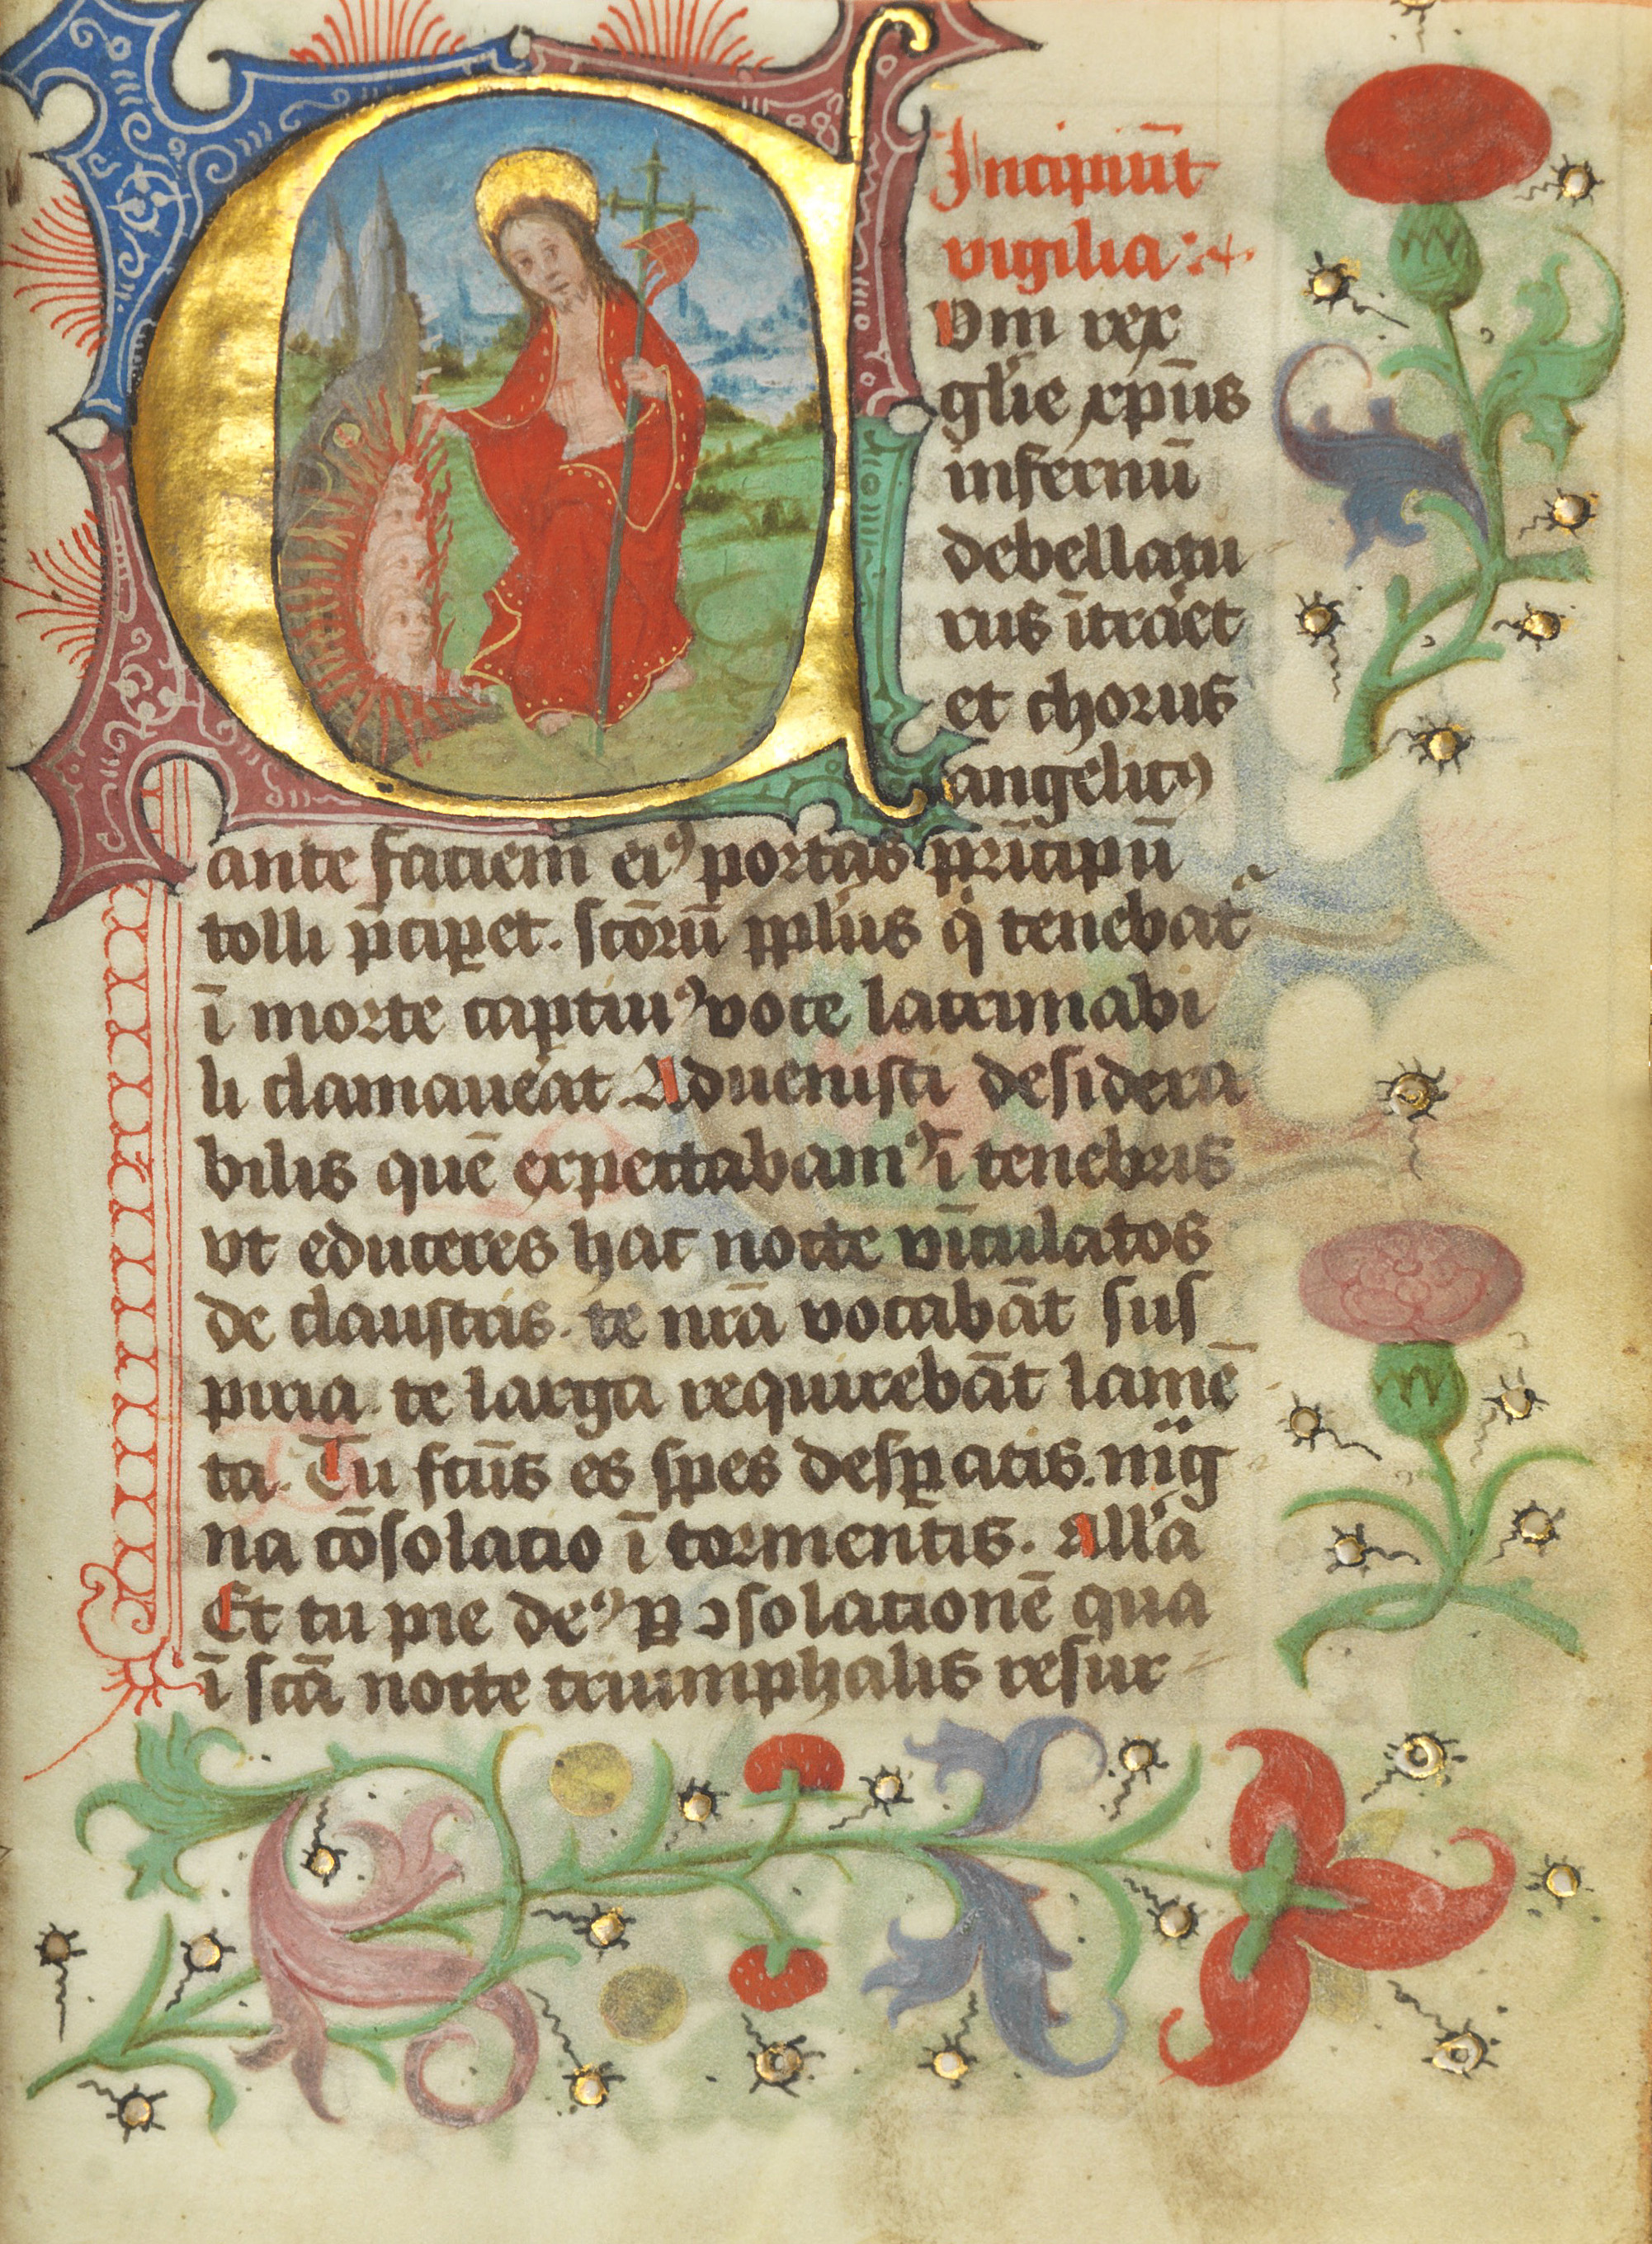 Incipiūt
vigilia
CUm rex
gl'ie xp̄us
infernū
debellatu
rus ītraret
et chorus
angelicꝰ
ante faciem eiꝰ portas prīcipū
tolli p̄ciꝑet. sc̄orū pp̄lus qͥ tenebat᷑
ī morte captiuꝰ voce lacrimabi
li clamauerat Aduenisti desidera
bilis quē expectabamꝰ ī tenebris
vt educeres hac nocte vīculatos
de claustris. te nr̄a vocabāt sus
piria. te larga requirebāt lamē
ta. Tu fc̄us es spes desꝑatis. mͣg
na cōsolacio ī tormentis. All'a
Et tu pie deꝰ ꝓ ꝯsolacionē qua
ī sc̄a nocte triumphalis resur